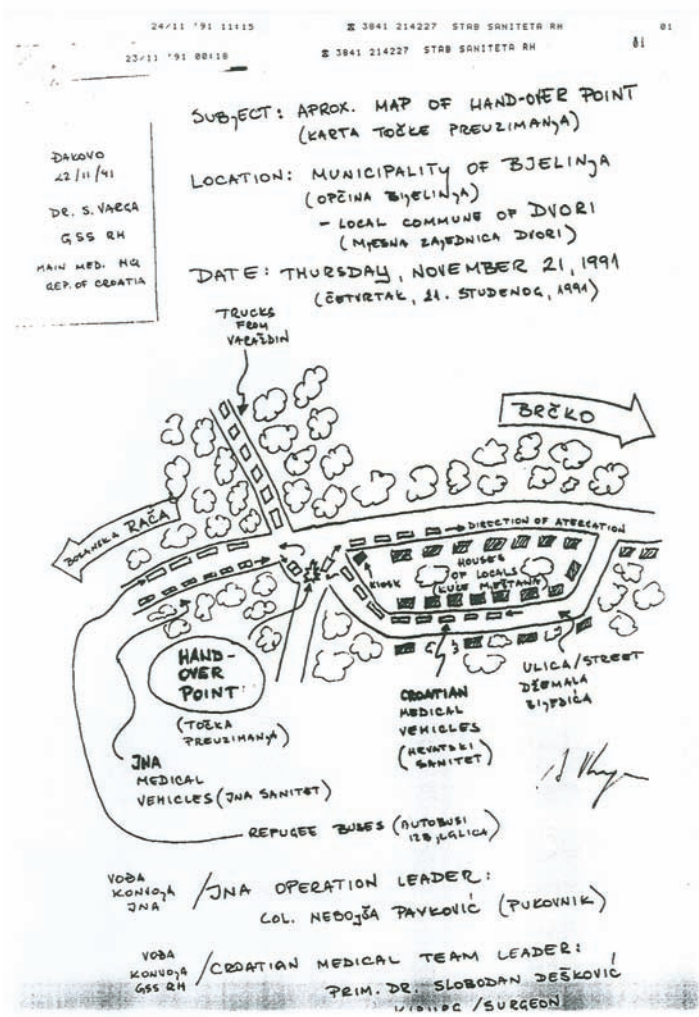 24/11 '91 11:15 ☎ 3841 214227 STAB SANITETA RH 01
23/11 '91 00:18 ☎ 3841 214227 STAB SANITETA RH 01
SUBJECT: APROX. MAP OF HAND-OVER POINT
(KARTA TOČKE PREUZIMANJA)
ĐAKOVO
22/11/91
DR. S. VARGA
GSS RH
MAIN MED. HQ
REP. OF CROATIA
LOCATION: MUNICIPALITY OF BJELINJA
(OPĆINA BIJELINJA)
- LOCAL COMMUNE OF DVORI
(MJESNA ZAJEDNICA DVORI)
DATE: THURSDAY, NOVEMBER 21, 1991
(ČETVRTAK, 21. STUDENOG, 1991)
TRUCKS
FROM
VARAŽDIN
BRČKO
BOSANSKA RAČA
DIRECTION OF ATERCATION
KIOSK
HOUSES
OF LOCALS
(KUĆE MJEŠTANA)
HAND-
OVER
POINT:
(TOČKA
PREUZIMANJA)
CROATIAN
MEDICAL
VEHICLES
(HRVATSKI
SANITET)
ULICA/STREET
DŽEMALA
BIJEDIĆA
JNA
MEDICAL
VEHICLES (JNA SANITET)
REFUGEE BUSES (AUTOBUSI
IZBJEGLICA)
VOĐA
KONVOJA
JNA
/JNA OPERATION LEADER:
COL. NEBOJŠA PAVKOVIĆ (PUKOVNIK)
VOĐA
KONVOJA
GSS RH
/CROATIAN MEDICAL TEAM LEADER:
PRIM. DR. SLOBODAN DEŠKOVIĆ
KIRURG/SURGEON